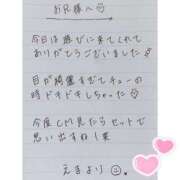 お兄様へ♡
今日は遊びに来てくれて
ありがとうございました
目が綺麗すぎてチューの
時ドキドキしちゃった
今度CM見たらセットで
思い出すね!笑
えまより